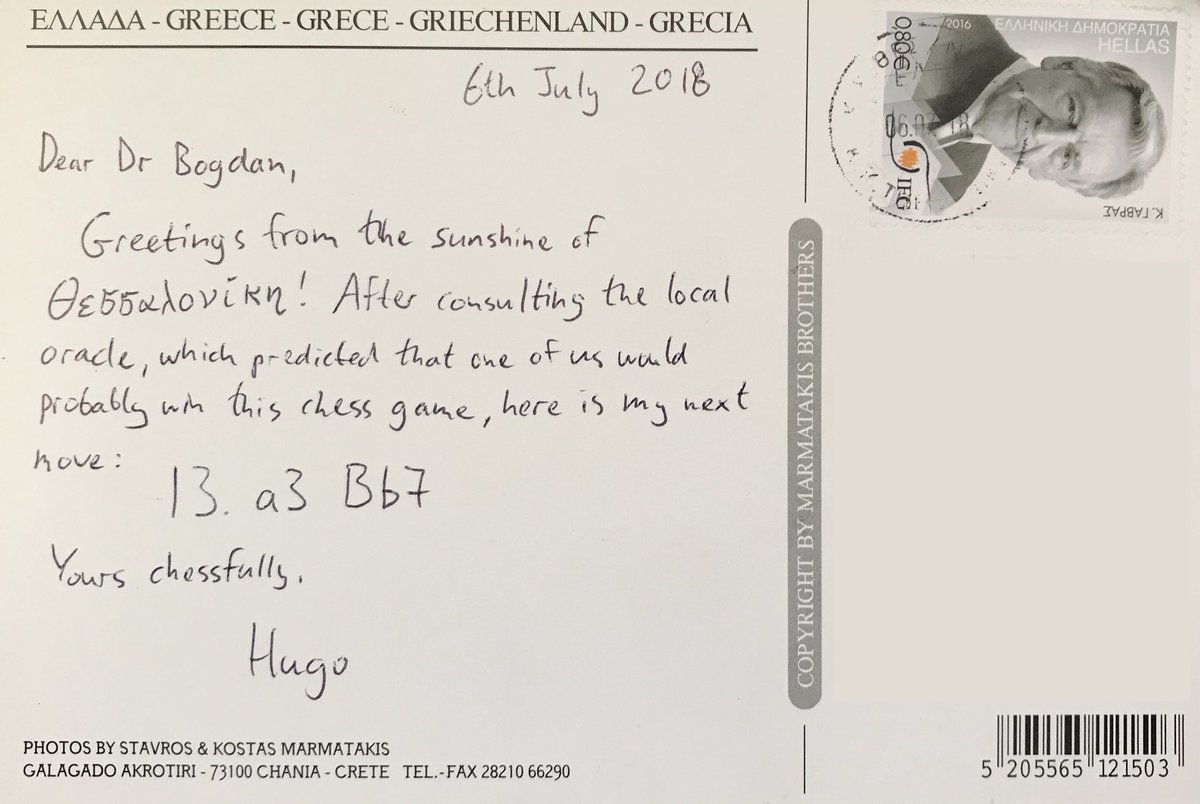 ΕΛΛΑΔΑ - GREECE - GRECE - GRIECHENLAND - GRECIA
6th July 2018
Dear Dr Bogdan,
Greetings from the sunshine of
Θεσσαλονίκη! After consulting the local
oracle, which predicted that one of us would
probably win this chess game, here is my next
move:
13. a3 Bb7
Yours chessfully,
Hugo
PHOTOS BY STAVROS & KOSTAS MARMATAKIS
GALAGADO AKROTIRI - 73100 CHANIA - CRETE TEL.-FAX 28210 66290
COPYRIGHT BY MARMATAKIS BROTHERS
0,80€
2016 ΕΛΛΗΝΙΚΗ ΔΗΜΟΚΡΑΤΙΑ
HELLAS
Κ. ΓΑΒΡΑΣ
06.07.18
5 205565 121503